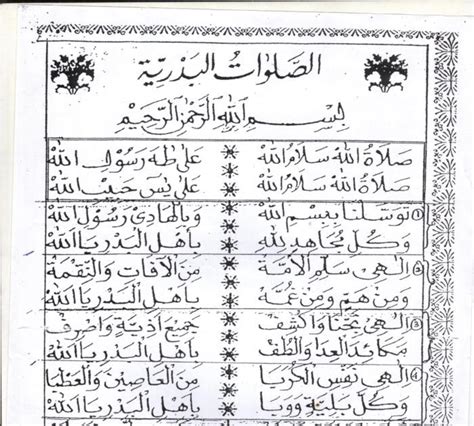 الصَّلَوَاتُ الْبَدْرِيَّة
بِسْمِ اللهِ الرَّحْمٰنِ الرَّحِيْمِ
صَلَاةُ اللهْ سَلَامُ اللهْ * عَلَى طٰهَ رَسُوْلِ اللهْ
صَلَاةُ اللهْ سَلَامُ اللهْ * عَلَى يٰسٓ حَبِيْبِ اللهْ
١ تَوَسَّلْنَا بِبِسْمِ اللهْ * وَبِالْهَادِيْ رَسُوْلِ اللهْ
وَكُلِّ مُجَاهِدٍ لِلهْ * بِاَهْلِ الْبَدْرِ يَا اَللهْ
٢ اِلٰهِيْ سَلِّمِ الْاُمَّةْ * مِنَ الْآفَاتِ وَالنِّقْمَةْ
وَمِنْ هَمٍّ وَمِنْ غُمَّةْ * بِاَهْلِ الْبَدْرِ يَا اَللهْ
٣ اِلٰهِيْ نَجِّنَا وَاكْشِفْ * جَمِيْعَ اَذِيَّةٍ وَاصْرِفْ
مَكَائِدَ الْعِدَا وَالْطُفْ * بِاَهْلِ الْبَدْرِ يَا اَللهْ
٤ اِلٰهِيْ نَفِّسِ الْكُرَبَا * مِنَ الْعَاصِيْنَ وَالْعَطْبَا
وَكُلِّ بَلِيَّةٍ وَوَبَا * بِاَهْلِ الْبَدْرِ يَا اَللهْ